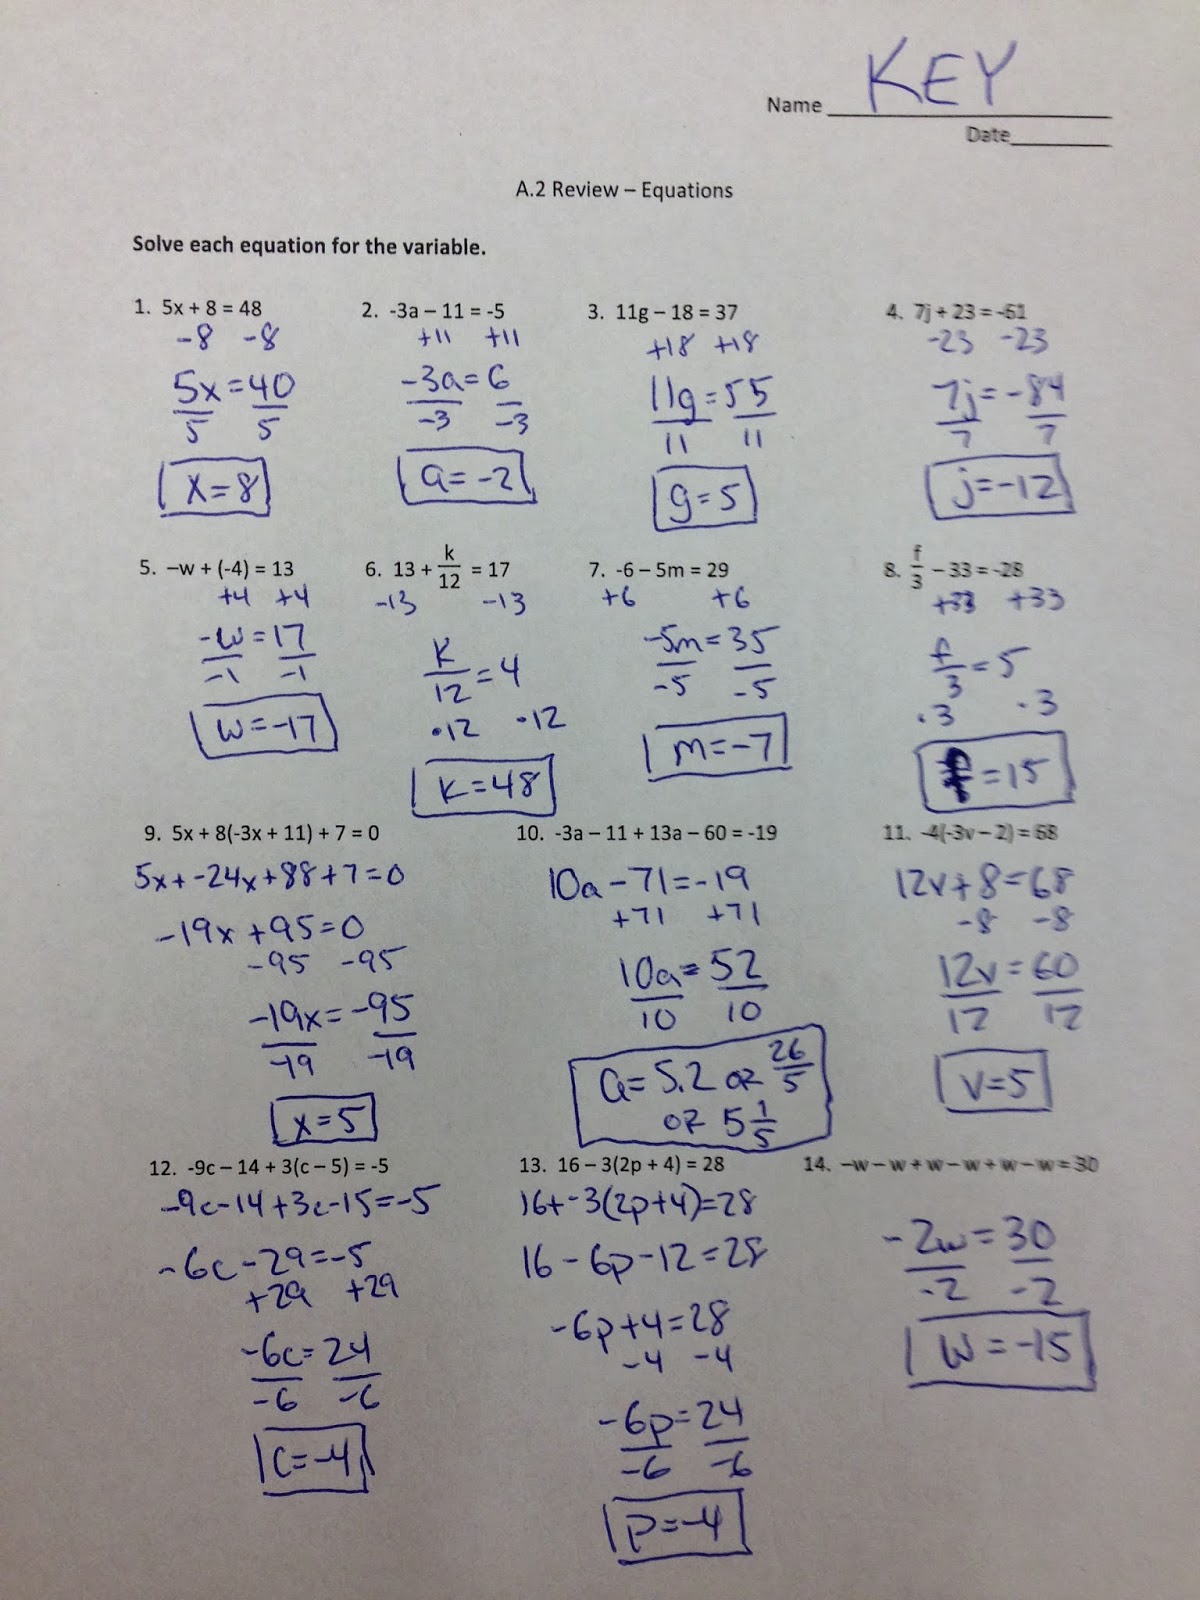 KEY
Name
Date
A.2 Review – Equations
Solve each equation for the variable.
1. 5x + 8 = 48
-8 -8
5x = 40
5 5
x = 8
2. -3a – 11 = -5
+11 +11
-3a = 6
-3 -3
a = -2
3. 11g – 18 = 37
+18 +18
11g = 55
11 11
g = 5
4. 7j + 23 = -61
-23 -23
7j = -84
7 7
j = -12
5. –w + (-4) = 13
+4 +4
-w = 17
-1 -1
w = -17
6. 13 + k/12 = 17
-13 -13
k/12 = 4
·12 ·12
k = 48
7. -6 – 5m = 29
+6 +6
-5m = 35
-5 -5
m = -7
8. f/3 – 33 = -28
+33 +33
f/3 = 5
·3 ·3
f = 15
9. 5x + 8(-3x + 11) + 7 = 0
5x + -24x + 88 + 7 = 0
-19x + 95 = 0
-95 -95
-19x = -95
-19 -19
x = 5
10. -3a – 11 + 13a – 60 = -19
10a - 71 = -19
+71 +71
10a = 52
10 10
a = 5.2 or 26/5
or 5 1/5
11. -4(-3v – 2) = 68
12v + 8 = 68
-8 -8
12v = 60
12 12
v = 5
12. -9c – 14 + 3(c – 5) = -5
-9c - 14 + 3c - 15 = -5
-6c - 29 = -5
+29 +29
-6c = 24
-6 -6
c = -4
13. 16 – 3(2p + 4) = 28
16 + -3(2p + 4) = 28
16 - 6p - 12 = 28
-6p + 4 = 28
-4 -4
-6p = 24
-6 -6
p = -4
14. –w – w + w – w + w – w = 30
-2w = 30
-2 -2
w = -15